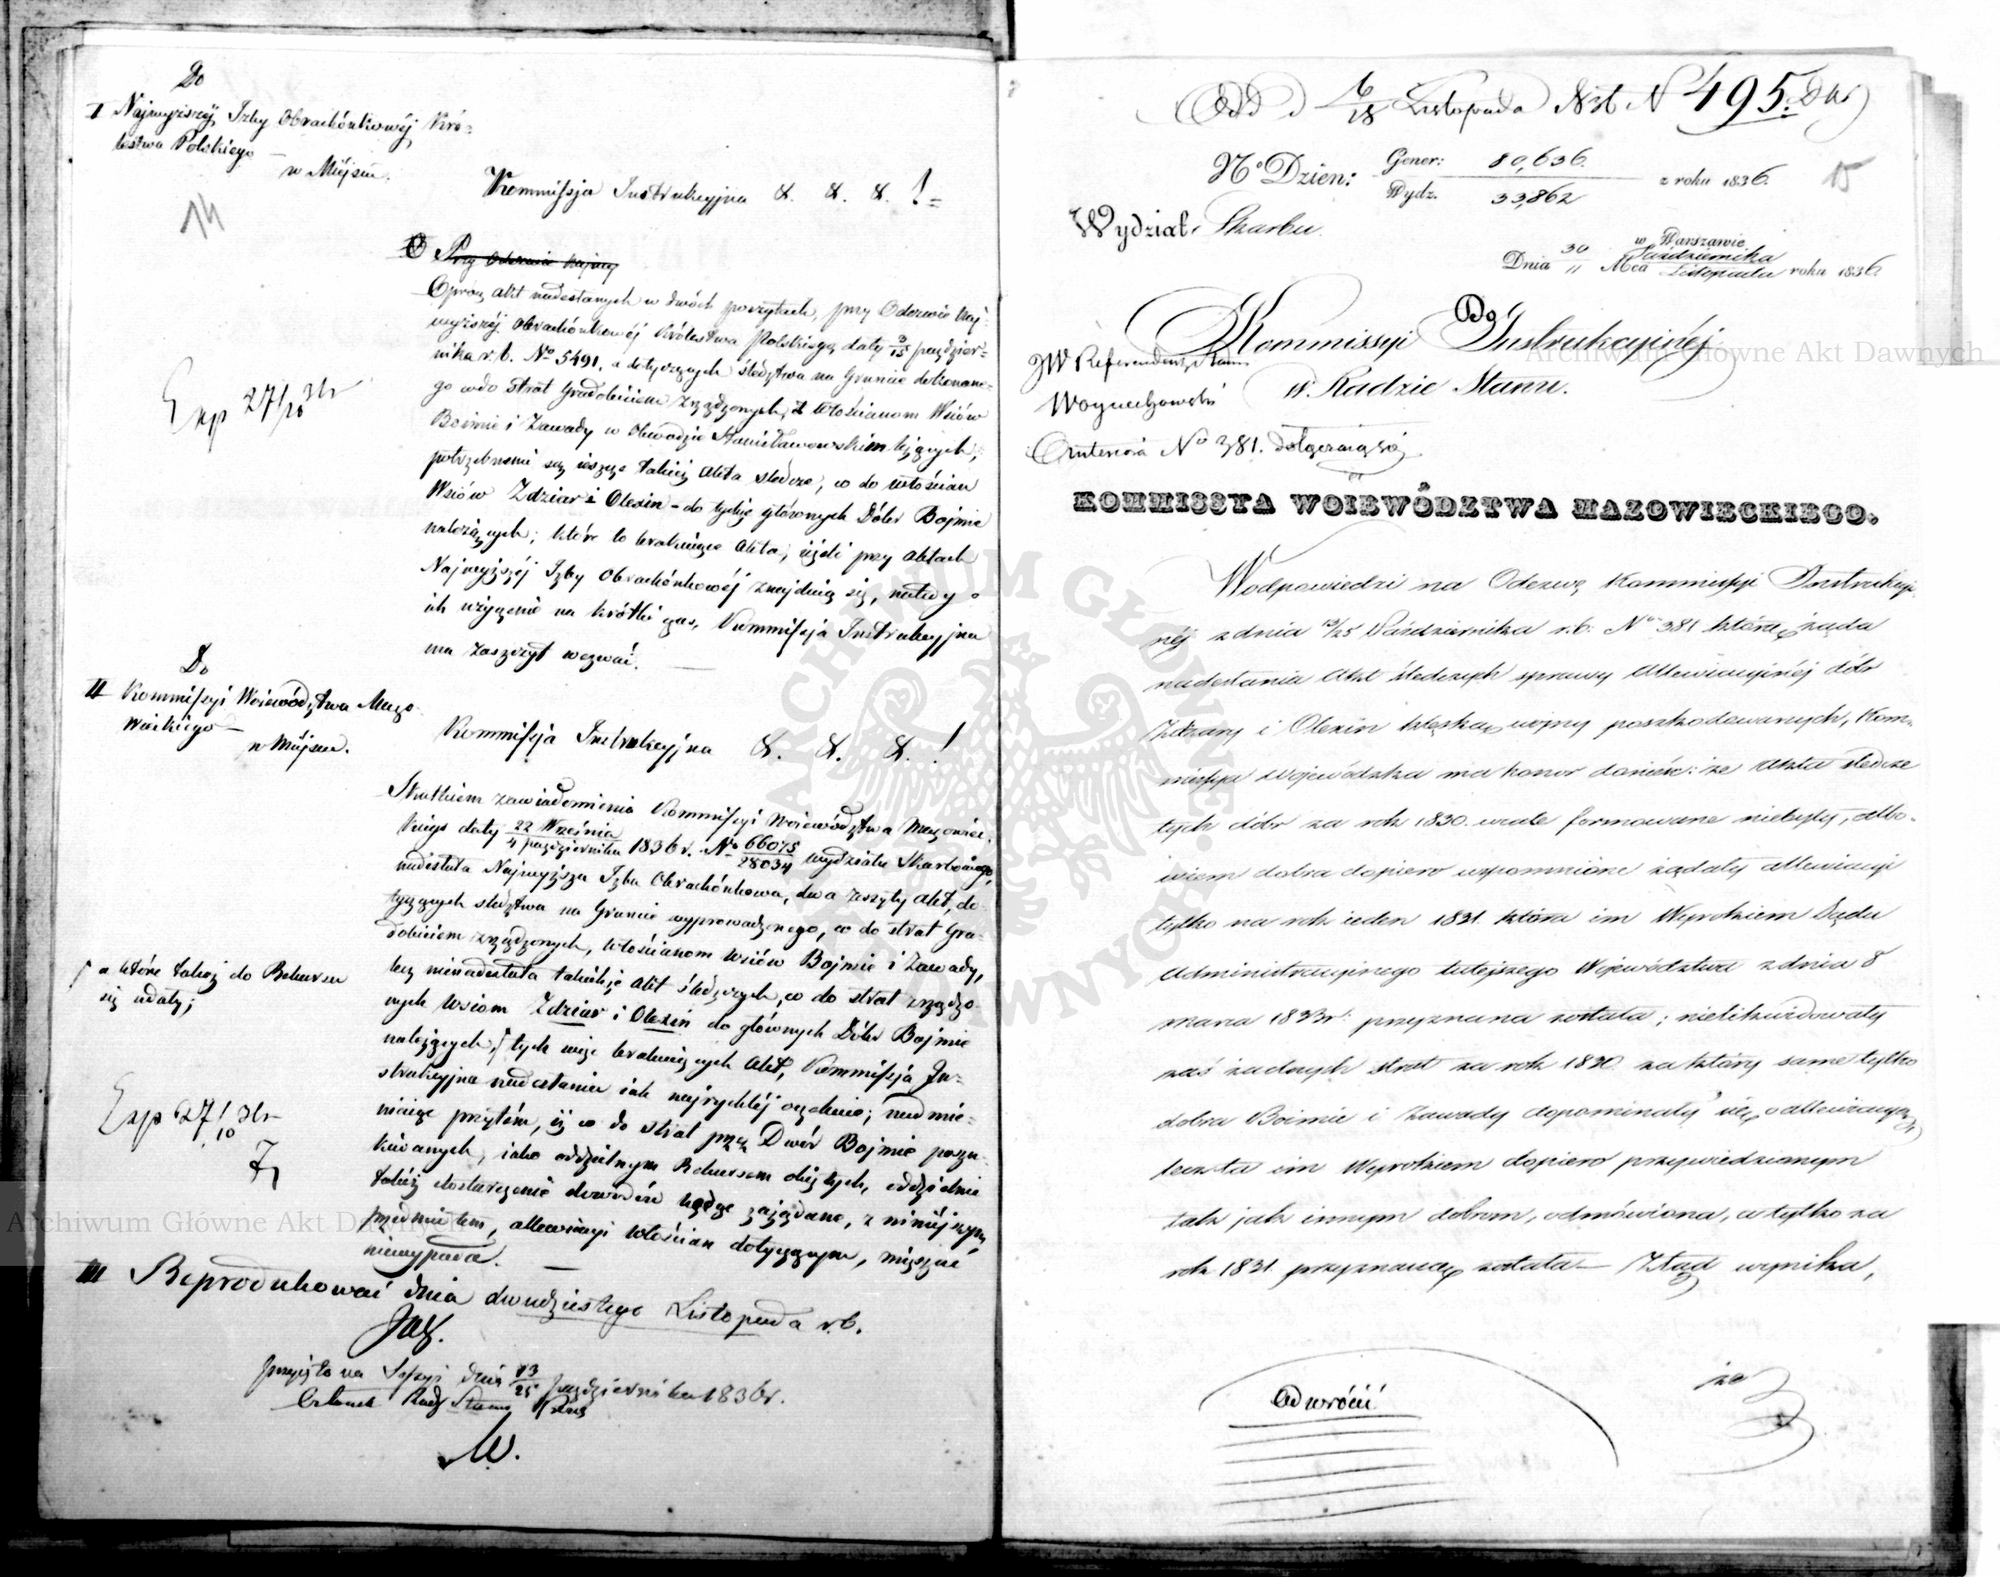 Do
I Najwyższej Izby Obrachónkowéj Kró-
lestwa Polskiego
w Miejscu.
14
Kommissja Instrukcyjna &. &. &. !
Przy Odezwie Najwy
Oprócz Akt nadesłanych w dwóch poszytach, przy Odezwie Naj-
wyższéj Obrachónkowéj Królestwa Polskiego daty 3/15 paździer-
nika r. b. No 5491, a dotyczących śledztwa na Gruncie dokonane-
go wdo strat Gradobiciem zrządzonych, Włościanom Wsiów
Boimie i Zawady w Obwodzie Stanisławowskim leżących,
potrzebnemi są ieszcze takież Akta śledcze, co do włościan
Wsiów Zdziar i Olexin - do tychże głównych Dóbr Bojmie
należących; które to brakuiące Akta, ieżeli przy Aktach
Najwyższéj Izby Obrachónkowéj znajduią się, natedy o
ich użyczenie na krótki czas, Kommissja Instrukcyjna
ma zaszczyt wezwać.
Exp 27/10 36r
Do
II Kommissyi Województwa Mazo-
wieckiego
w Miejscu.
Kommissja Instrukcyjna &. &. &. !
Skutkiem zawiadomienia Kommissyi Województwa Mazowiec-
kiego daty 22 Września / 4 października 1836 r. No 66075/28034 wydziału Skarbowego,
nadesłała Najwyższa Izba Obrachónkowa, dwa zeszyty Akt, do-
tyczących śledztwa na Gruncie wyprowadzonego, co do strat Gra-
dobiciem zrządzonych, Włościanom wsiów Bojmie i Zawady,
lecz nienadesłała takichże Akt śledczych, co do strat zrządzo-
nych wsiom Zdziar i Olexin do głównych Dóbr Bojmie
należących, tych więc brakuiących Akt, Kommissja In-
strukcyjna nadesłania iak najrychléj oczekuie; nadmie-
niaiąc przytém, iż co do strat przez Dwór Bojmie poszu-
kiwanych, iako oddzielnym Rekursem obiętych, oddzielnie
także dostarczenie dowodów będzie zażądane, z niniéjszym
przedmiotem, allewiacyi włościan dotyczącym, mięszać
niewypada.
a które także do Rekursu
się udały;
Exp 27/10 36r
III Reprodukować dnia dwudziestego Listopada r. b.
przyjęto na Sessyi dnia 13/25 października 1836 r.
Członek Rady Stanu
W.
Odd d 6/18 Listopada No 495.
15
No Dzien: Gener: 80,636. / Wydz. 33,862 z roku 1836.
Wydział Skarbu.
w Warszawie
Dnia 30/11 Mca Października/Listopada roku 1836
Do
Kommissyi Instrukcyjnéj
w Radzie Stanu.
JW Referendarz Stanu
Woyciechowski
Anteriora No 381. dołączaią się
KOMMISSYA WOIEWÓDZTWA MAZOWIECKIEGO.
W odpowiedzi na Odezwę Kommissyi Instrukcyj-
néj z dnia 13/25 Października r. b. No 381 którą żąda
nadesłania Akt śledczych sprawy Allewiacyjnéj dóbr
Zdziary i Olexin klęską woyny poszkodowanych, Kom-
missyja Wojewódzka ma honor donieść: że Akta śledcze
tych dóbr za rok 1830. wcale formowane niebyły, albo-
wiem dobra dopiero wspomnione żądały allewiacyi
tylko na rok ieden 1831. która im Wyrokiem Sądu
Administracyjnego tutejszego Województwa z dnia 8
marca 1833 r: przyznana została; nielikwidowały
zaś żadnych strat za rok 1830. za który same tylko
dobra Boimie i Zawady dopominały się o allewiacyą
lecz ta im Wyrokiem dopiero przywiedzionym
tak jak innym dobrom, odmówiona, a tylko za
rok 1831. przyznaną została — Ztąd wynika,
że
Odwróć
Archiwum Główne Akt Dawnych
Archiwum Główne Akt Dawnych
ARCHIWUM GŁÓWNE AKT DAWNYCH